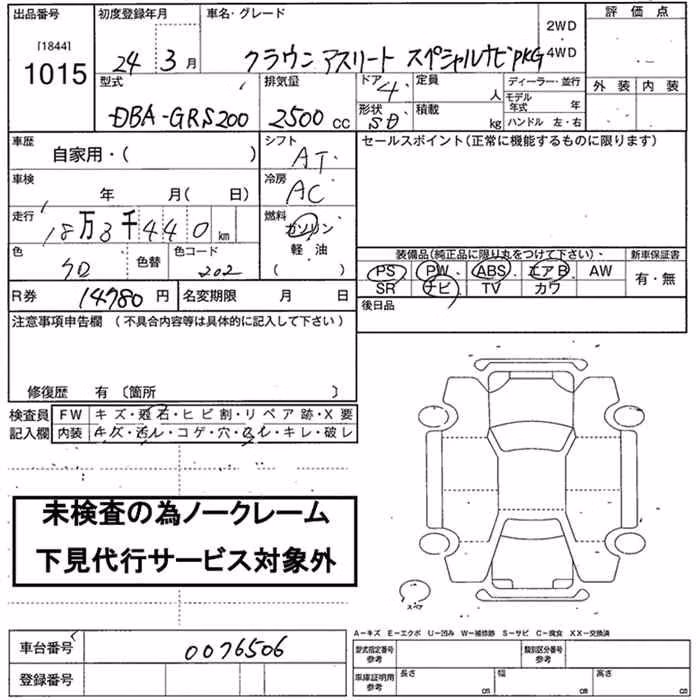 出品番号 初度登録年月 車名・グレード 評価点
[1844]
1015
24 3月 クラウン アスリート スペシャルナビPKG 2WD 4WD
型式 排気量 ドア 4 定員 人 ディーラー・並行 外装 内装
DBA-GRS200 2500cc 形状 SD 積載 kg モデル年式 年 ハンドル 左・右
車歴 自家用・( ) シフト AT セールスポイント(正常に機能するものに限ります)
車検 年 月( 日) 冷房 AC
走行 18万3千440km 燃料 ガソリン
軽・油
( )
色 クロ 色替 色コード 202
装備品(純正品に限り丸をつけて下さい)・ 新車保証書
PS PW ABS エアB AW 有・無
SR ナビ TV カワ
R券 14780円 名変期限 月 日 後日品
注意事項申告欄 (不具合内容等は具体的に記入して下さい)
修復歴 有 〔箇所 〕
検査員 FW キズ・飛石・ヒビ割・リペア跡・X要
記入欄 内装 キズ・汚れ・コゲ・穴・スレ・キレ・破レ
未検査の為ノークレーム
下見代行サービス対象外
スペア
A-キズ E-エクボ U-凹み W-補修跡 S-サビ C-腐食 XX-交換済
車台番号 0076506 型式指定番号 参考 類別区分番号 参考
登録番号 車庫証明用 参考 長さ cm 幅 cm 高さ cm